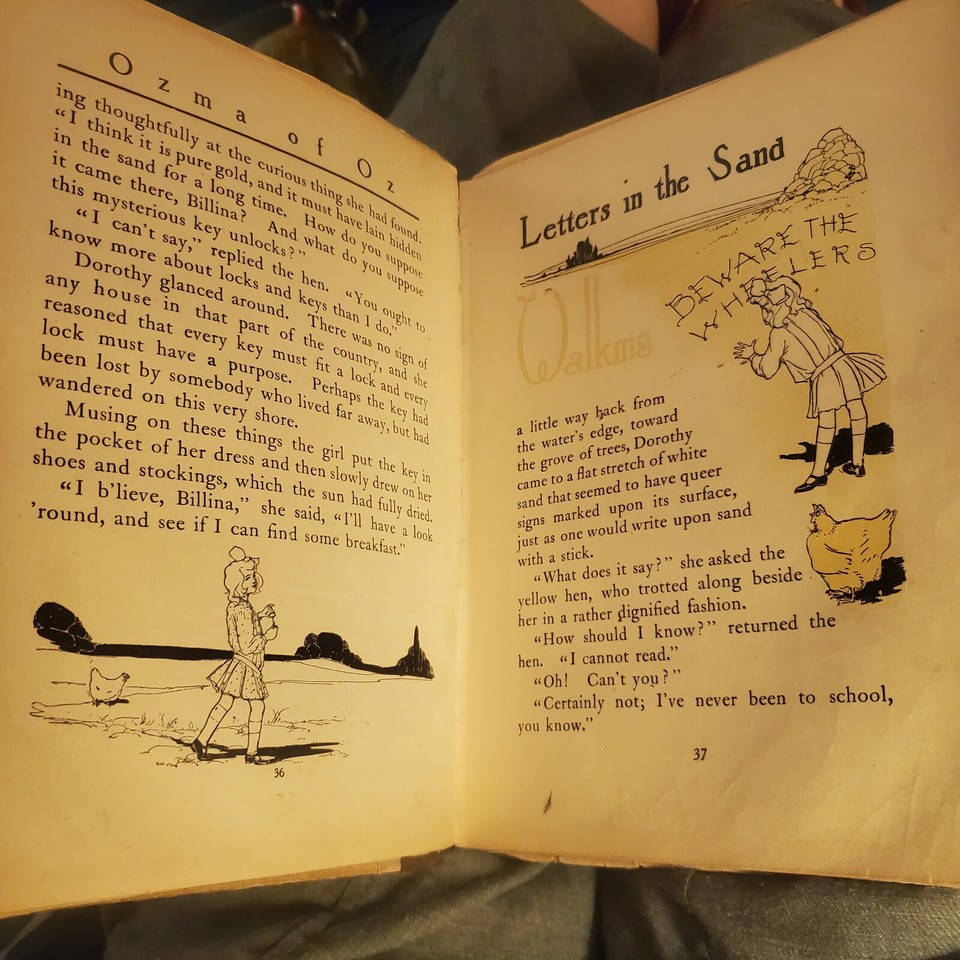 Ozma of Oz
ing thoughtfully at the curious thing she had found.
“I think it is pure gold, and it must have lain hidden
in the sand for a long time. How do you suppose
it came there, Billina? And what do you suppose
this mysterious key unlocks?”
“I can't say,” replied the hen. “You ought to
know more about locks and keys than I do.”
Dorothy glanced around. There was no sign of
any house in that part of the country, and she
reasoned that every key must fit a lock and every
lock must have a purpose. Perhaps the key had
been lost by somebody who lived far away, but had
wandered on this very shore.
Musing on these things the girl put the key in
the pocket of her dress and then slowly drew on her
shoes and stockings, which the sun had fully dried.
“I b'lieve, Billina,” she said, “I'll have a look
'round, and see if I can find some breakfast.”
36
Letters in the Sand
BEWARE THE
WHEELERS
Walking
a little way back from
the water's edge, toward
the grove of trees, Dorothy
came to a flat stretch of white
sand that seemed to have queer
signs marked upon its surface,
just as one would write upon sand
with a stick.
“What does it say?” she asked the
yellow hen, who trotted along beside
her in a rather dignified fashion.
“How should I know?” returned the
hen. “I cannot read.”
“Oh! Can't you?”
“Certainly not; I've never been to school,
you know.”
37